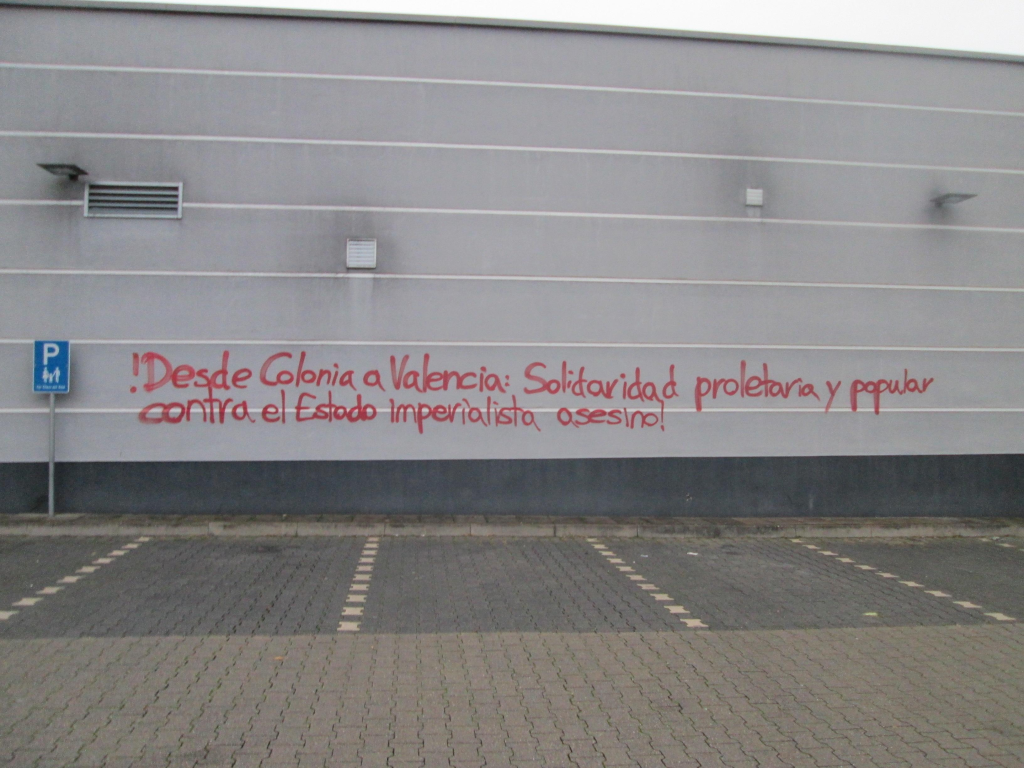 P
!Desde Colonia a Valencia: Solidaridad proletaria y popular
contra el Estado imperialista asesino!